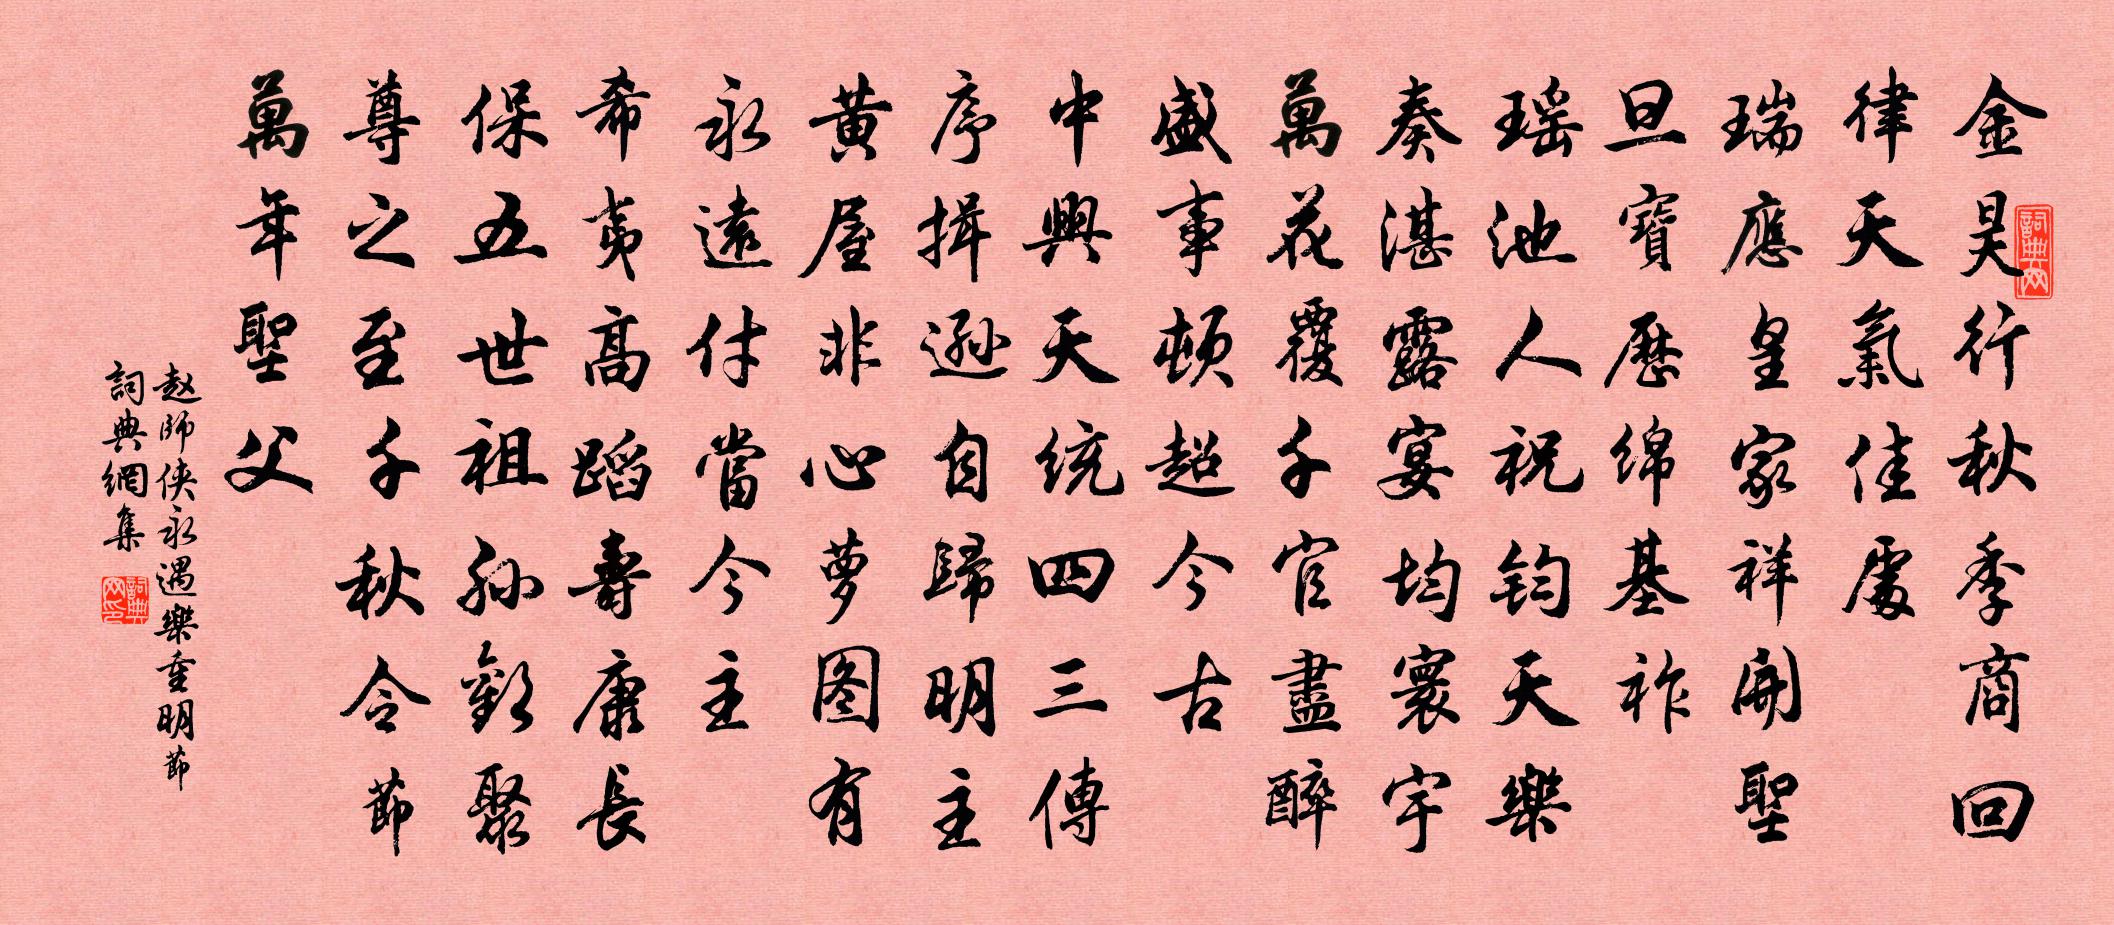 金昊行秋季商回
律天氣佳處
瑞應皇家祥開聖
旦寶歷绵基祚
瑶池人祝钧天樂
奏湛露宴均寰宇
萬花覆千官盡醉
盛事頓超今古
中興天统四三傳
序揖逊自歸明主
黄屋非心萝图有
永遠付當今主
希夷高蹈壽康長
保五世祖孙歡聚
尊之至千秋令節
萬年聖父
赵師侠永遇樂重明節
詞典網集
詞典网
詞典网印